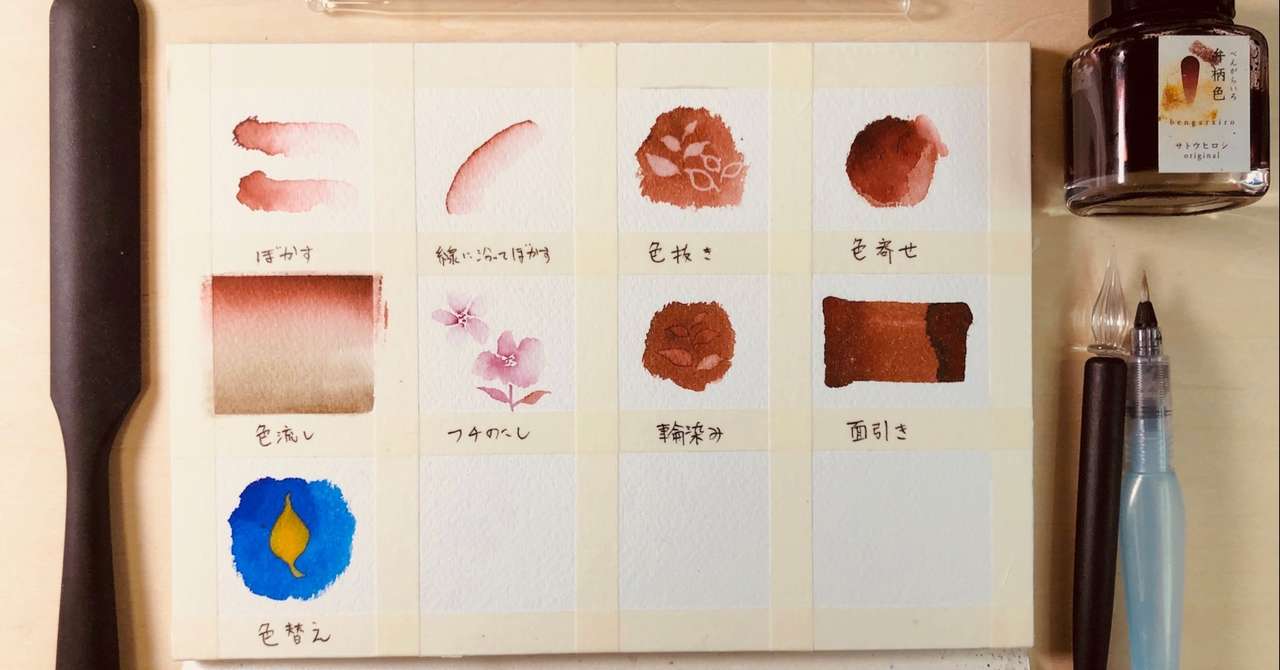 ぼかす
線に沿ってぼかす
色抜き
色寄せ
色流し
フチのたし
輪染み
面引き
色替え
弁柄色
べんがらいろ
bengarairo
サトウヒロシ
original